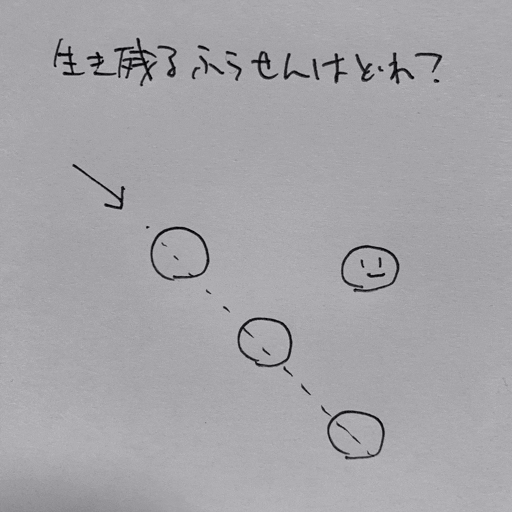 生き残るふうせんはどれ？